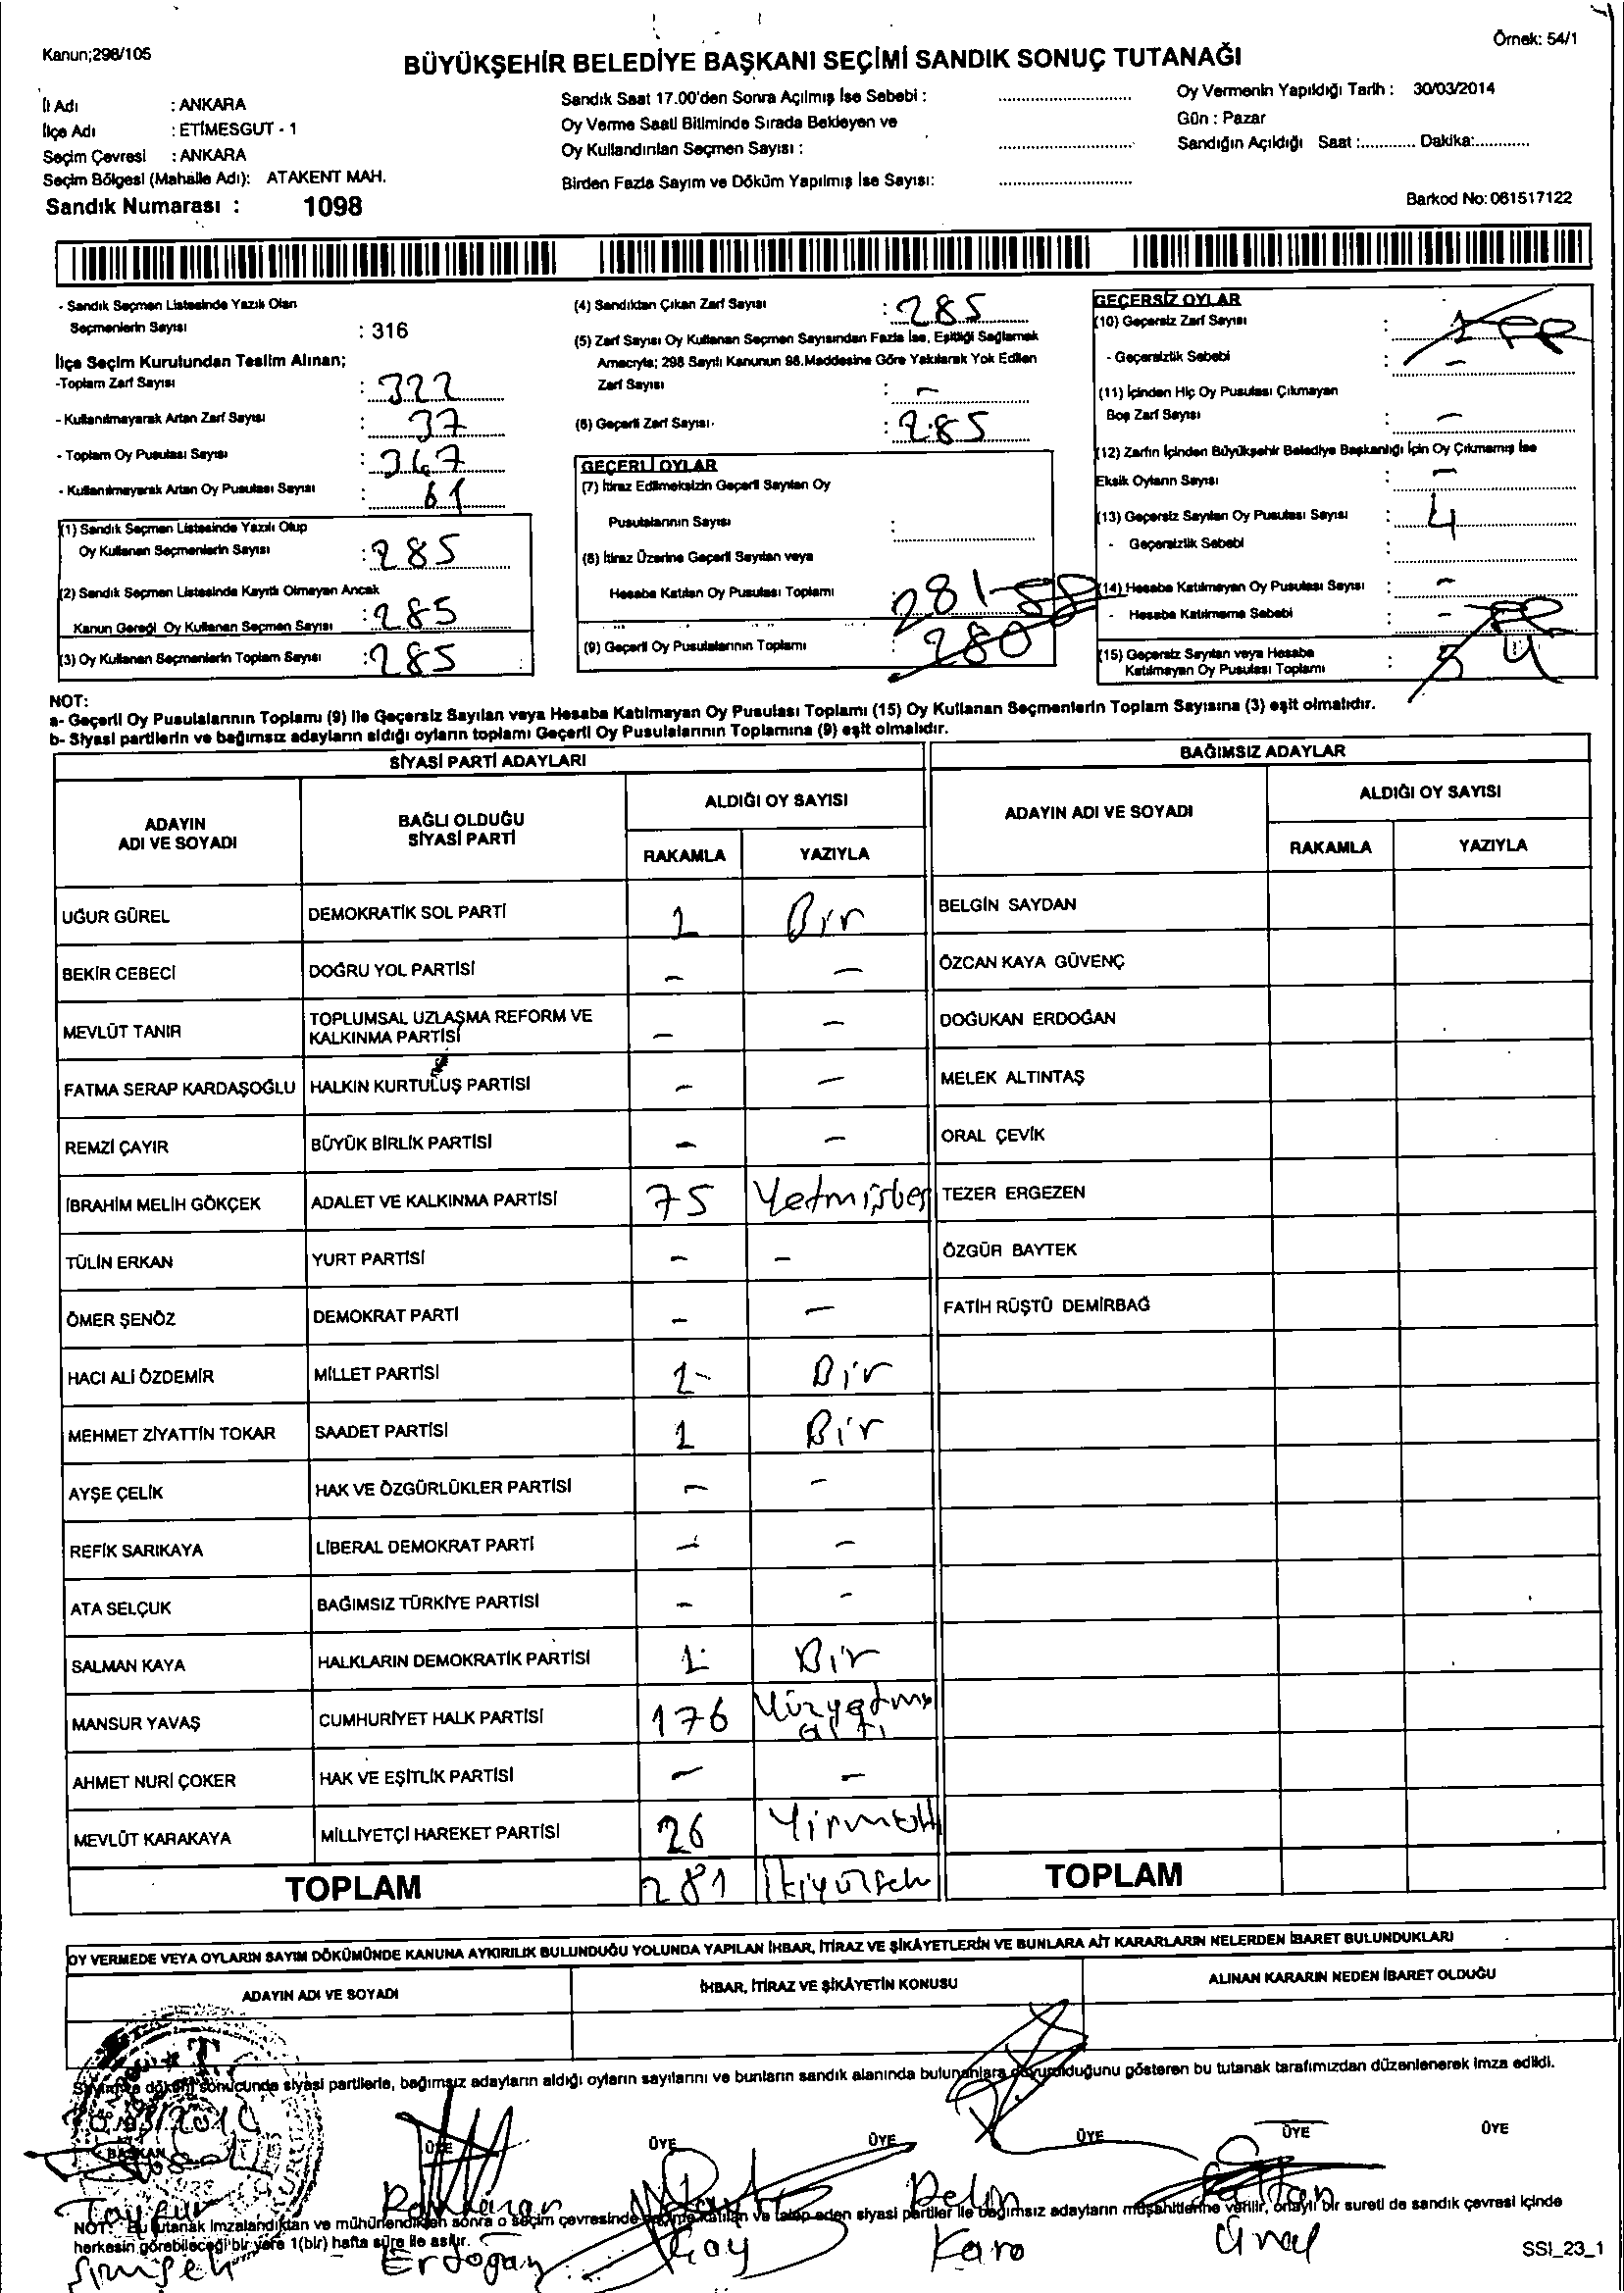 Kanun;298/105
Örnek: 54/1
BÜYÜKŞEHİR BELEDİYE BAŞKANI SEÇİMİ SANDIK SONUÇ TUTANAĞI
İl Adı : ANKARA
İlçe Adı : ETİMESGUT - 1
Seçim Çevresi : ANKARA
Seçim Bölgesi (Mahalle Adı): ATAKENT MAH.
Sandık Numarası : 1098
Sandık Saat 17.00'den Sonra Açılmış İse Sebebi :
Oy Verme Saati Bitiminde Sırada Bekleyen ve
Oy Kullandırılan Seçmen Sayısı :
Birden Fazla Sayım ve Döküm Yapılmış İse Sayısı:
Oy Vermenin Yapıldığı Tarih : 30/03/2014
Gün : Pazar
Sandığın Açıldığı Saat :............ Dakika:............
Barkod No: 061517122
- Sandık Seçmen Listesinde Yazılı Olan
Seçmenlerin Sayısı : 316
İlçe Seçim Kurulundan Teslim Alınan;
-Toplam Zarf Sayısı : 322
- Kullanılmayarak Artan Zarf Sayısı : 37
- Toplam Oy Pusulası Sayısı : 347
- Kullanılmayarak Artan Oy Pusulası Sayısı : 61
(1) Sandık Seçmen Listesinde Yazılı Olup
Oy Kullanan Seçmenlerin Sayısı : 285
(2) Sandık Seçmen Listesinde Kayıtlı Olmayan Ancak
Kanun Gereği Oy Kullanan Seçmen Sayısı : 285
(3) Oy Kullanan Seçmenlerin Toplam Sayısı : 285
(4) Sandıktan Çıkan Zarf Sayısı : 285
(5) Zarf Sayısı Oy Kullanan Seçmen Sayısından Fazla İse, Eşitliği Sağlamak
Amacıyla; 298 Sayılı Kanunun 98.Maddesine Göre Yakılarak Yok Edilen
Zarf Sayısı : -
(6) Geçerli Zarf Sayısı : 285
GEÇERLİ OYLAR
(7) İtiraz Edilmeksizin Geçerli Sayılan Oy
Pusulalarının Sayısı :
(8) İtiraz Üzerine Geçerli Sayılan veya
Hesaba Katılan Oy Pusulası Toplamı 281
(9) Geçerli Oy Pusulalarının Toplamı : 280
GEÇERSİZ OYLAR
(10) Geçersiz Zarf Sayısı : 1
- Geçersizlik Sebebi : -
(11) İçinden Hiç Oy Pusulası Çıkmayan
Boş Zarf Sayısı : -
(12) Zarfın İçinden Büyükşehir Belediye Başkanlığı İçin Oy Çıkmamış İse
Eksik Oyların Sayısı : -
(13) Geçersiz Sayılan Oy Pusulası Sayısı : 4
- Geçersizlik Sebebi :
(14) Hesaba Katılmayan Oy Pusulası Sayısı : -
- Hesaba Katılmama Sebebi : -
(15) Geçersiz Sayılan veya Hesaba
Katılmayan Oy Pusulası Toplamı : 5 4
NOT:
a- Geçerli Oy Pusulalarının Toplamı (9) ile Geçersiz Sayılan veya Hesaba Katılmayan Oy Pusulası Toplamı (15) Oy Kullanan Seçmenlerin Toplam Sayısına (3) eşit olmalıdır.
b- Siyasi partilerin ve bağımsız adayların aldığı oyların toplamı Geçerli Oy Pusulalarının Toplamına (9) eşit olmalıdır.
SİYASİ PARTİ ADAYLARI
BAĞIMSIZ ADAYLAR
ADAYIN ADI VE SOYADI
BAĞLI OLDUĞU SİYASİ PARTİ
ALDIĞI OY SAYISI
RAKAMLA YAZIYLA
ADAYIN ADI VE SOYADI
ALDIĞI OY SAYISI
RAKAMLA YAZIYLA
UĞUR GÜREL DEMOKRATİK SOL PARTİ 1 Bir BELGİN SAYDAN
BEKİR CEBECİ DOĞRU YOL PARTİSİ - - ÖZCAN KAYA GÜVENÇ
MEVLÜT TANIR TOPLUMSAL UZLAŞMA REFORM VE KALKINMA PARTİSİ - - DOĞUKAN ERDOĞAN
FATMA SERAP KARDAŞOĞLU HALKIN KURTULUŞ PARTİSİ - - MELEK ALTINTAŞ
REMZİ ÇAYIR BÜYÜK BİRLİK PARTİSİ - - ORAL ÇEVİK
İBRAHİM MELİH GÖKÇEK ADALET VE KALKINMA PARTİSİ 75 Yetmişbeş TEZER ERGEZEN
TÜLİN ERKAN YURT PARTİSİ - - ÖZGÜR BAYTEK
ÖMER ŞENÖZ DEMOKRAT PARTİ - - FATİH RÜŞTÜ DEMİRBAĞ
HACI ALİ ÖZDEMİR MİLLET PARTİSİ 1- Bir
MEHMET ZİYATTİN TOKAR SAADET PARTİSİ 1 Bir
AYŞE ÇELİK HAK VE ÖZGÜRLÜKLER PARTİSİ - -
REFİK SARIKAYA LİBERAL DEMOKRAT PARTİ - -
ATA SELÇUK BAĞIMSIZ TÜRKİYE PARTİSİ - -
SALMAN KAYA HALKLARIN DEMOKRATİK PARTİSİ 1 Bir
MANSUR YAVAŞ CUMHURİYET HALK PARTİSİ 176 Yüzyetmiş altı
AHMET NURİ ÇOKER HAK VE EŞİTLİK PARTİSİ - -
MEVLÜT KARAKAYA MİLLİYETÇİ HAREKET PARTİSİ 26 Yirmialtı
TOPLAM 281 TOPLAM
OY VERMEDE VEYA OYLARIN SAYIM DÖKÜMÜNDE KANUNA AYKIRILIK BULUNDUĞU YOLUNDA YAPILAN İHBAR, İTİRAZ VE ŞİKÂYETLERİN VE BUNLARA AİT KARARLARIN NELERDEN İBARET BULUNDUKLARI
ADAYIN ADI VE SOYADI İHBAR, İTİRAZ VE ŞİKÂYETİN KONUSU ALINAN KARARIN NEDEN İBARET OLDUĞU
Sayım ve döküm sonucunda siyasi partilerle, bağımsız adayların aldığı oyların sayılarını ve bunların sandık alanında bulunanlara duyurulduğunu gösteren bu tutanak tarafımızdan düzenlenerek imza edildi.
BAŞKAN ÜYE ÜYE ÜYE ÜYE ÜYE ÜYE
Tayfur Ramazan Pelin Sultan
Şimşek Erdoğan Koay Karo Ünal
NOT: Bu tutanak imzalandıktan ve mühürlendikten sonra o seçim çevresinde seçime katılan ve talep eden siyasi partiler ile bağımsız adayların müşahitlerine verilir, onaylı bir sureti de sandık çevresi içinde
herkesin görebileceği bir yere 1(bir) hafta süre ile asılır.
SSI_23_1